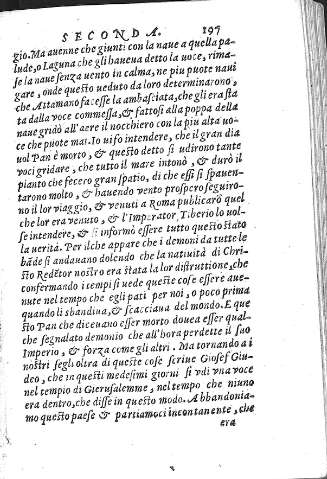 SECONDA. 197
gio. Ma auenne che giunti con la naue a quella pa-
lude, o Laguna che gli haueua detto la uoce, rima-
se la naue senza uento in calma, ne piu puote naui
gare, onde questo ueduto da loro determinarono,
che Attamano facesse la ambasciata, che gli era sta
ta dalla voce commessa, & fattosi alla poppa della
naue gridò all'aere il nocchiero con la piu alta uo-
ce che puote mai. Io ui fo intendere, che il gran dia
uol Pan è morto, & questo detto si udirono tante
voci gridare, che tutto il mare intonò, & durò il
pianto che fecero gran spatio, di che essi si spauen-
tarono molto, & hauendo vento prospero seguiro-
no il lor viaggio, & venuti a Roma publicarò quel
che lor era venuto, & l'Imperator Tiberio lo uol-
se intendere, & si informò essere tutto questo stato
la uerità. Per ilche appare che i demoni da tutte le
bāde si andauano dolendo che la natiuità di Chri-
sto Redētor nostro era stata la lor distruttione, che
confermando i tempi si uede queste cose essere aue-
nute nel tempo che egli patì per noi, o poco prima
quando li sbandiua, & scacciaua del mondo. E que
sto Pan che diceuano esser morto douea esser qual-
che segnalato demonio che all'hora perdette il suo
Imperio, & forza come gli altri. Ma tornando a i
nostri segli oltra di queste cose scriue Giosef Giu-
deo, che in questi medesimi giorni si vdì vna voce
nel tempio di Gierusalemme, nel tempo che niuno
era dentro, che disse in questo modo. Abbandonia-
mo questo paese & partiamoci incontanente, che
era